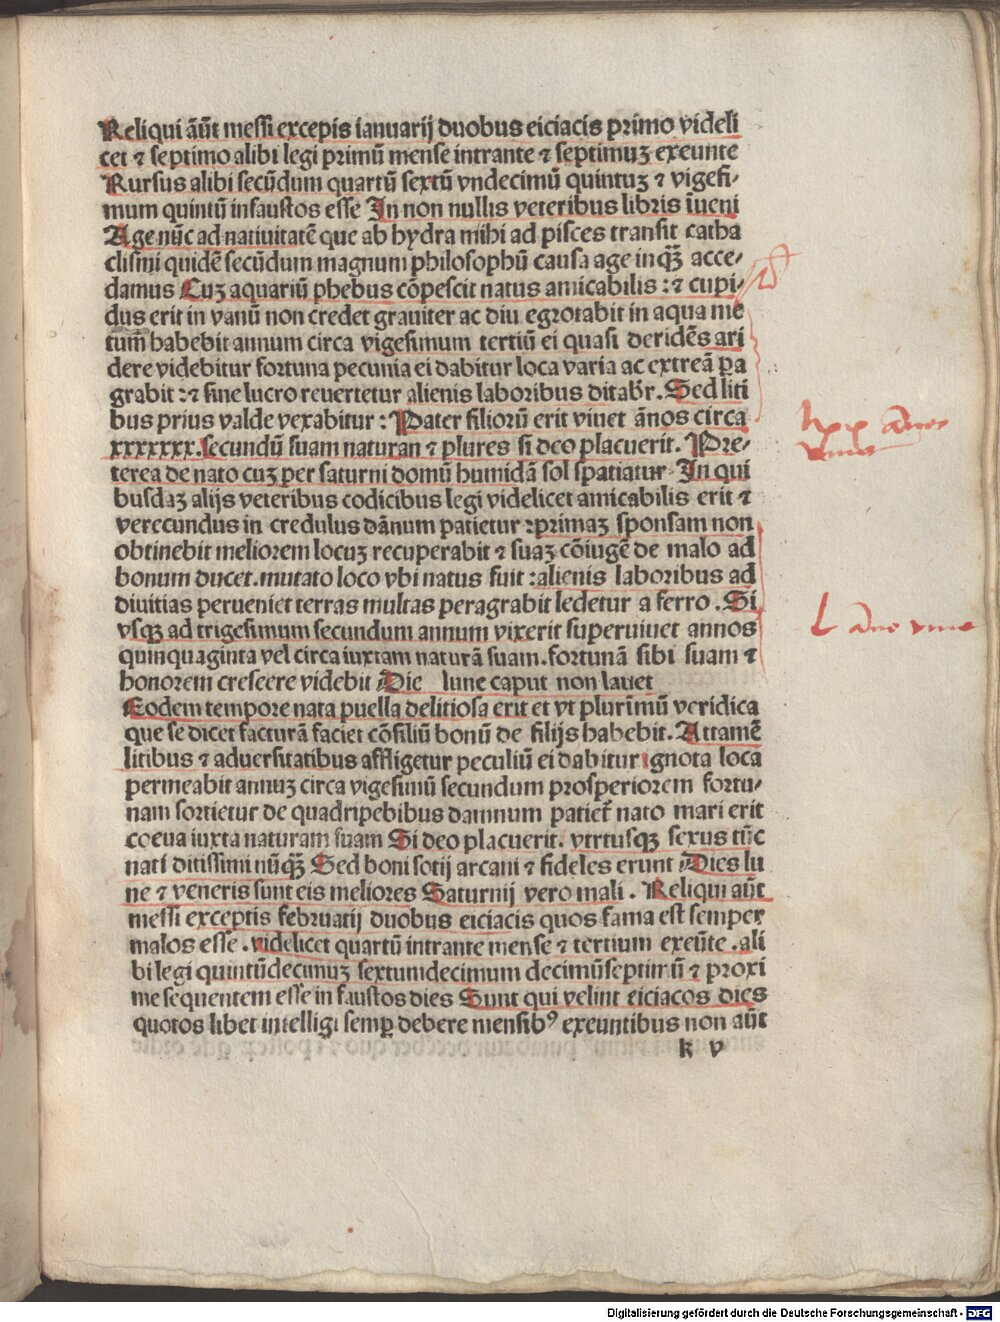 Reliqui āūt messi excepis ianuarij duobus eiciacis primo videli
cet ⁊ septimo alibi legi primū mense intrante ⁊ septimuꝫ exeunte
Rursus alibi secūdum quartū sextū vndecimū quintuꝫ ⁊ vigesi-
mum quintū infaustos esse In non nullis veteribus libris īueni
Age nūc ad natiuitatē que ab hydra mihi ad pisces transit catha
clismi quidē secūdum magnum philosophū causa age inqꝫ acce-
damus Cuꝫ aquariū phebus cōpescit natus amicabilis :⁊ cupi-
dus erit in vanū non credet grauiter ac diu egrotabit in aqua me
tum habebit annum circa vigesimum tertiū ei quasi deridēs ari
dere videbitur fortuna pecunia ei dabitur loca varia ac extreā ꝑa
grabit :⁊ sine lucro reuertetur alienis laboribus ditabr̄. Sed liti
bus prius valde vexabitur : Pater filiorū erit viuet ānos circa
xxxxxxx. secundū suam naturan ⁊ plures si deo placuerit. Pre-
terea de nato cuꝫ per saturni domū humidā sol spatiatur In qui
busdaꝫ alijs veteribus codicibus legi videlicet amicabilis erit ⁊
verecundus in credulus dānum patietur :primaꝫ sponsam non
obtinebit meliorem locuꝫ recuperabit ⁊ suaꝫ cōiugē de malo ad
bonum ducet. mutato loco vbi natus fuit :alienis laboribus ad
diuitias perueniet terras multas peragrabit ledetur a ferro . Si
vsqꝫ ad trigesimum secundum annum vixerit superuiuet annos
quinquaginta vel circa iuxtam naturā suam. fortunā sibi suam ⁊
honorem crescere videbit Die lune caput non lauet
Eodem tempore nata puella delitiosa erit et vt plurimū veridica
que se dicet facturā faciet cōsiliū bonū de filijs habebit. Attamē
litibus ⁊ aduersitatibus affligetur peculiū ei dabitur ignota loca
permeabit annuꝫ circa vigesimū secundum prosperiorem fortu-
nam sortietur de quadripebibus damnum patiet̄ nato mari erit
coeua iuxta naturam suam Si deo placuerit. vtrtusqꝫ sexus tūc
nati ditissimi nūqꝫ Sed boni sotij arcani ⁊ fideles erunt Dies lu
ne ⁊ veneris sunt eis meliores Saturnij vero mali . Reliqui aūt
messi exceptis februarij duobus eiciacis quos fama est semper
malos esse . videlicet quartū intrante mense ⁊ tertium exeūte . ali
bi legi quintūdecimuꝫ sextumdecimum decimūseptimū ⁊ proxi
me sequentem esse in faustos dies Sunt qui velint eiciacos dies
quotos libet intelligi semꝑ debere mensibꝰ exeuntibus non aūt
k v
Digitalisierung gefördert durch die Deutsche Forschungsgemeinschaft - DFG